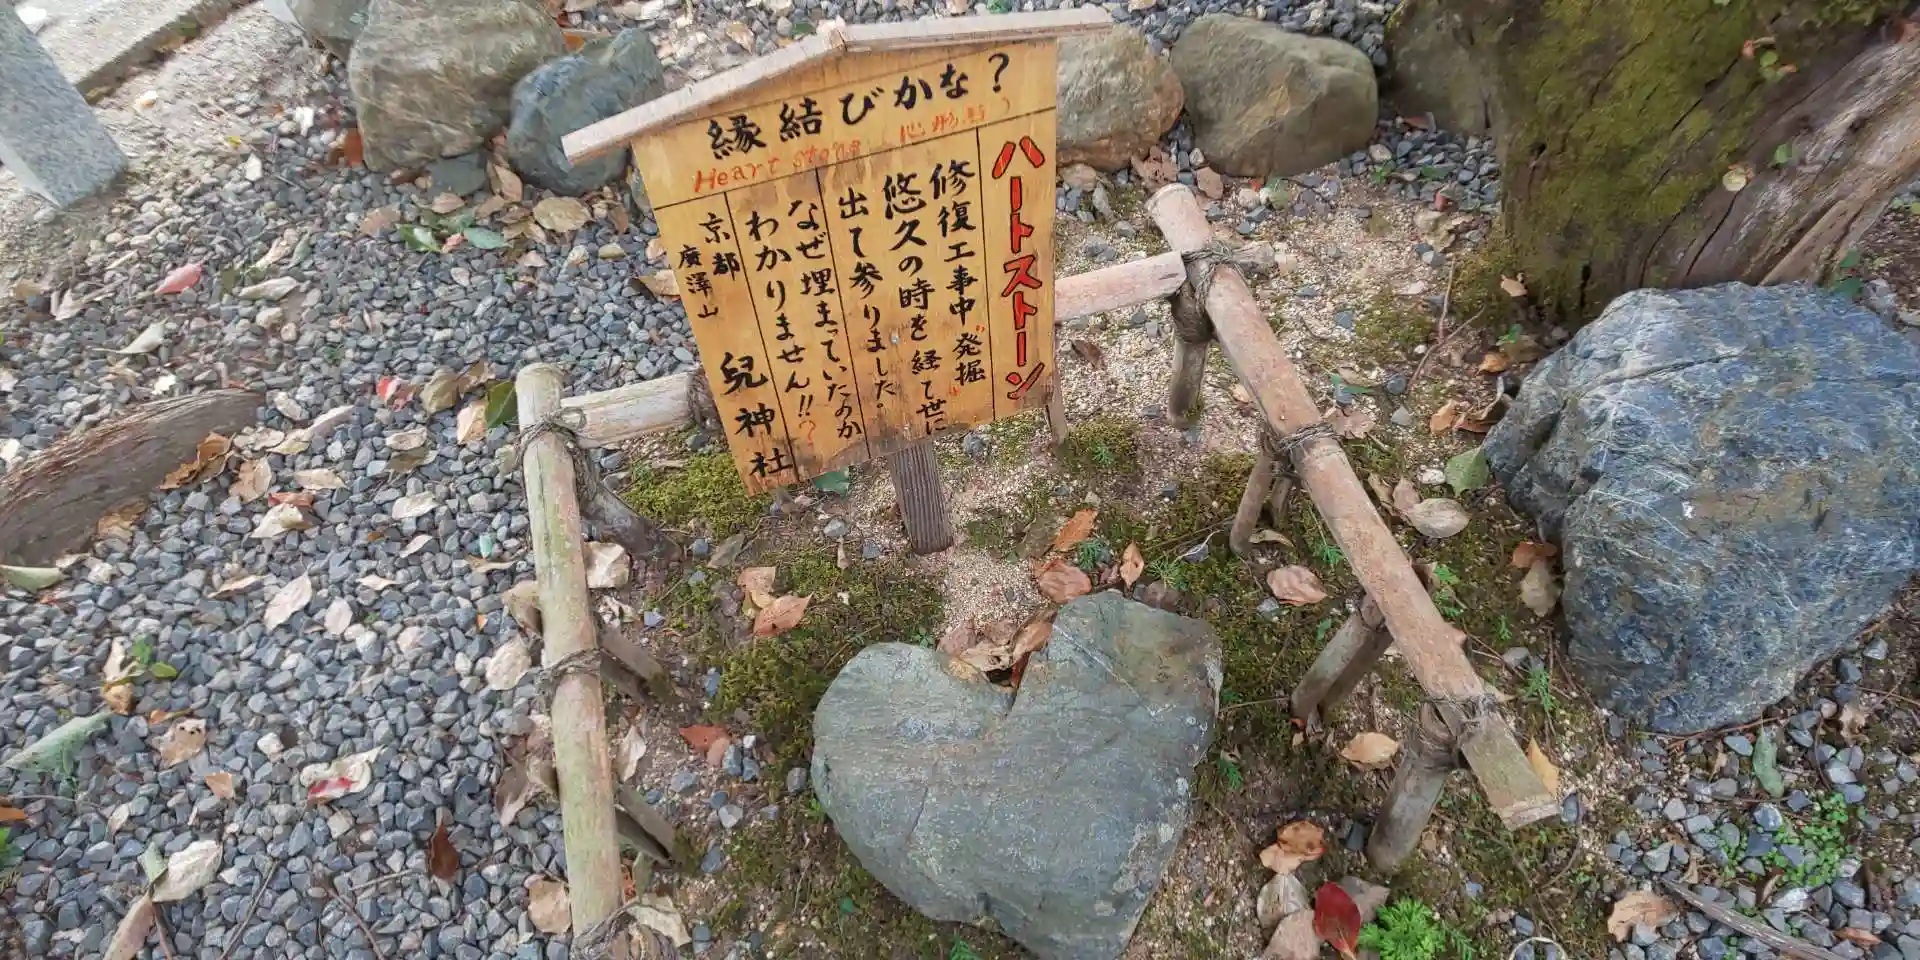 縁結びかな?
Heart stone 心形
ハートストーン
修復工事中"発掘"
悠久の時を経て世に
出て参りました。
なぜ埋まっていたのか
わかりません!!?
京都
廣澤山
兒神社